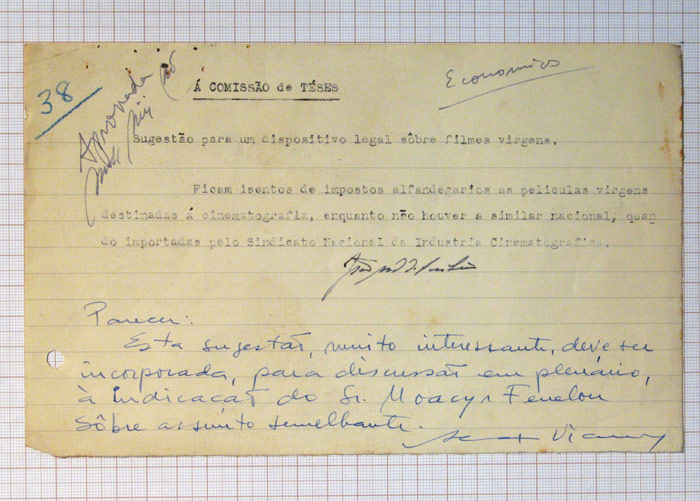 38
Aprovada
Economico
Á COMISSÃO de TÉSES
Sugestão para um dispositivo legal sôbre filmes virgens.
Ficam isentos de impostos alfandegarios as peliculas virgens
destinadas á cinematografia, enquanto não houver a similar nacional, quan
do importadas pelo Sindicato Nacional da Industria Cinematografica.
Parecer:
Esta sugestão, muito interessante, deve ser
incorporada, para discussão em plenário,
à indicação do Sr. Moacyr Fenelon
Sôbre assunto semelhante.
Viany